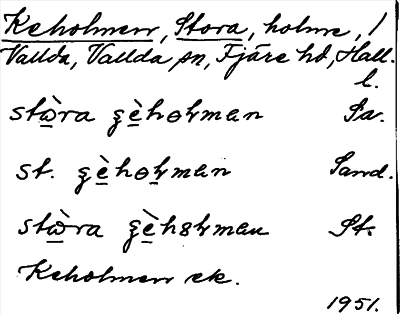 Keholmen, Stora, holme, /
Vallda, Vallda sn, Fjäre hd, Hall.
l.
stὼra gèhoɫman Sa.
st. gèhoɫman Sand.
stὼra gèhoɫman St.
Keholmen ek.
1951.